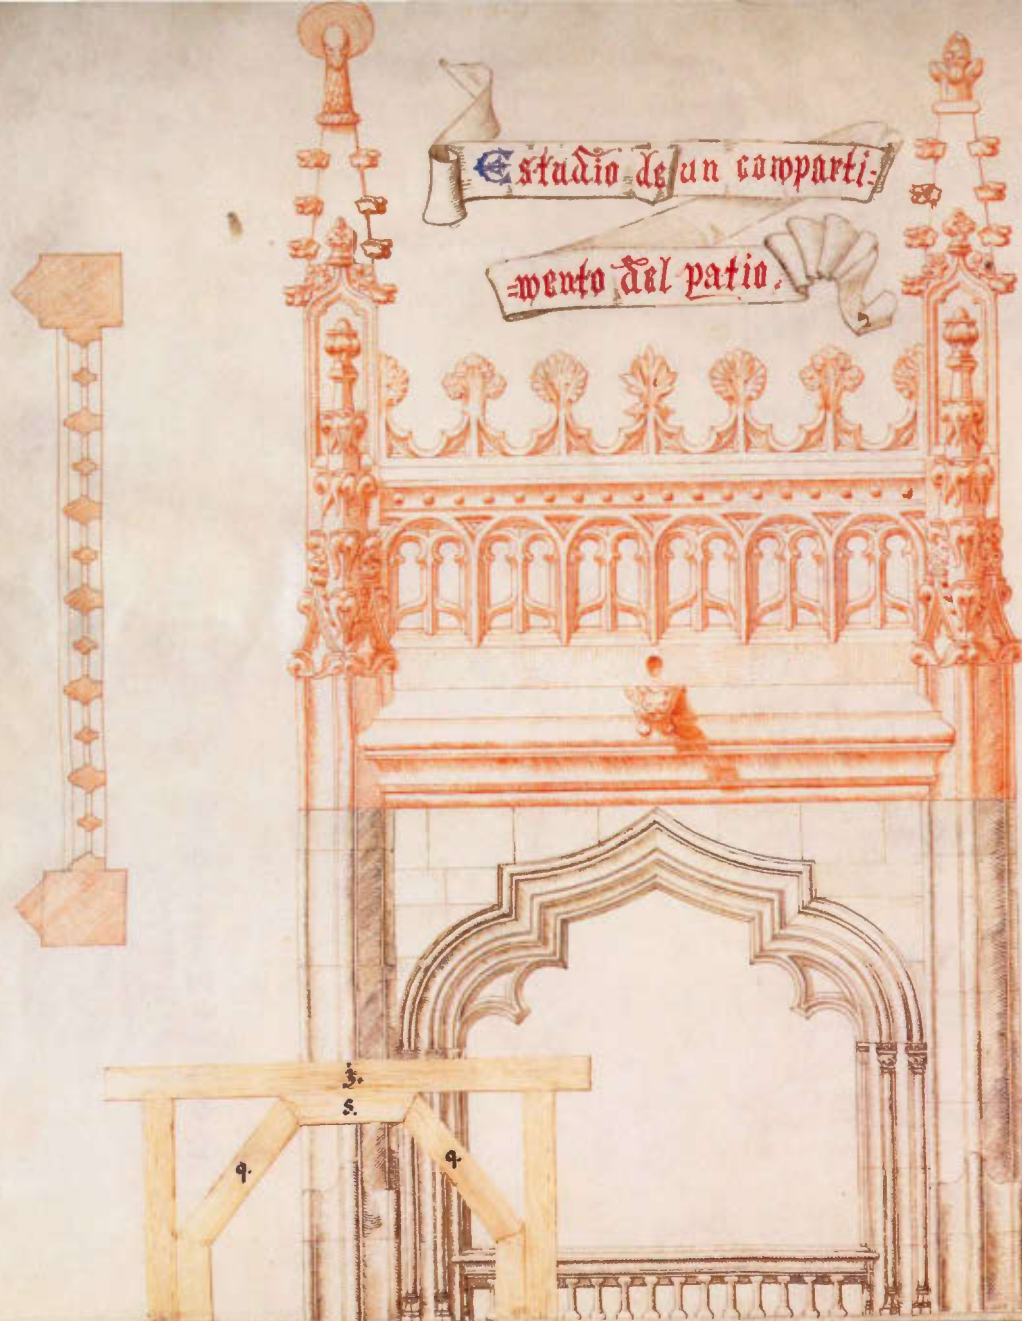 Estudio de un comparti=
=mento del patio.
z.
s.
q.
q.